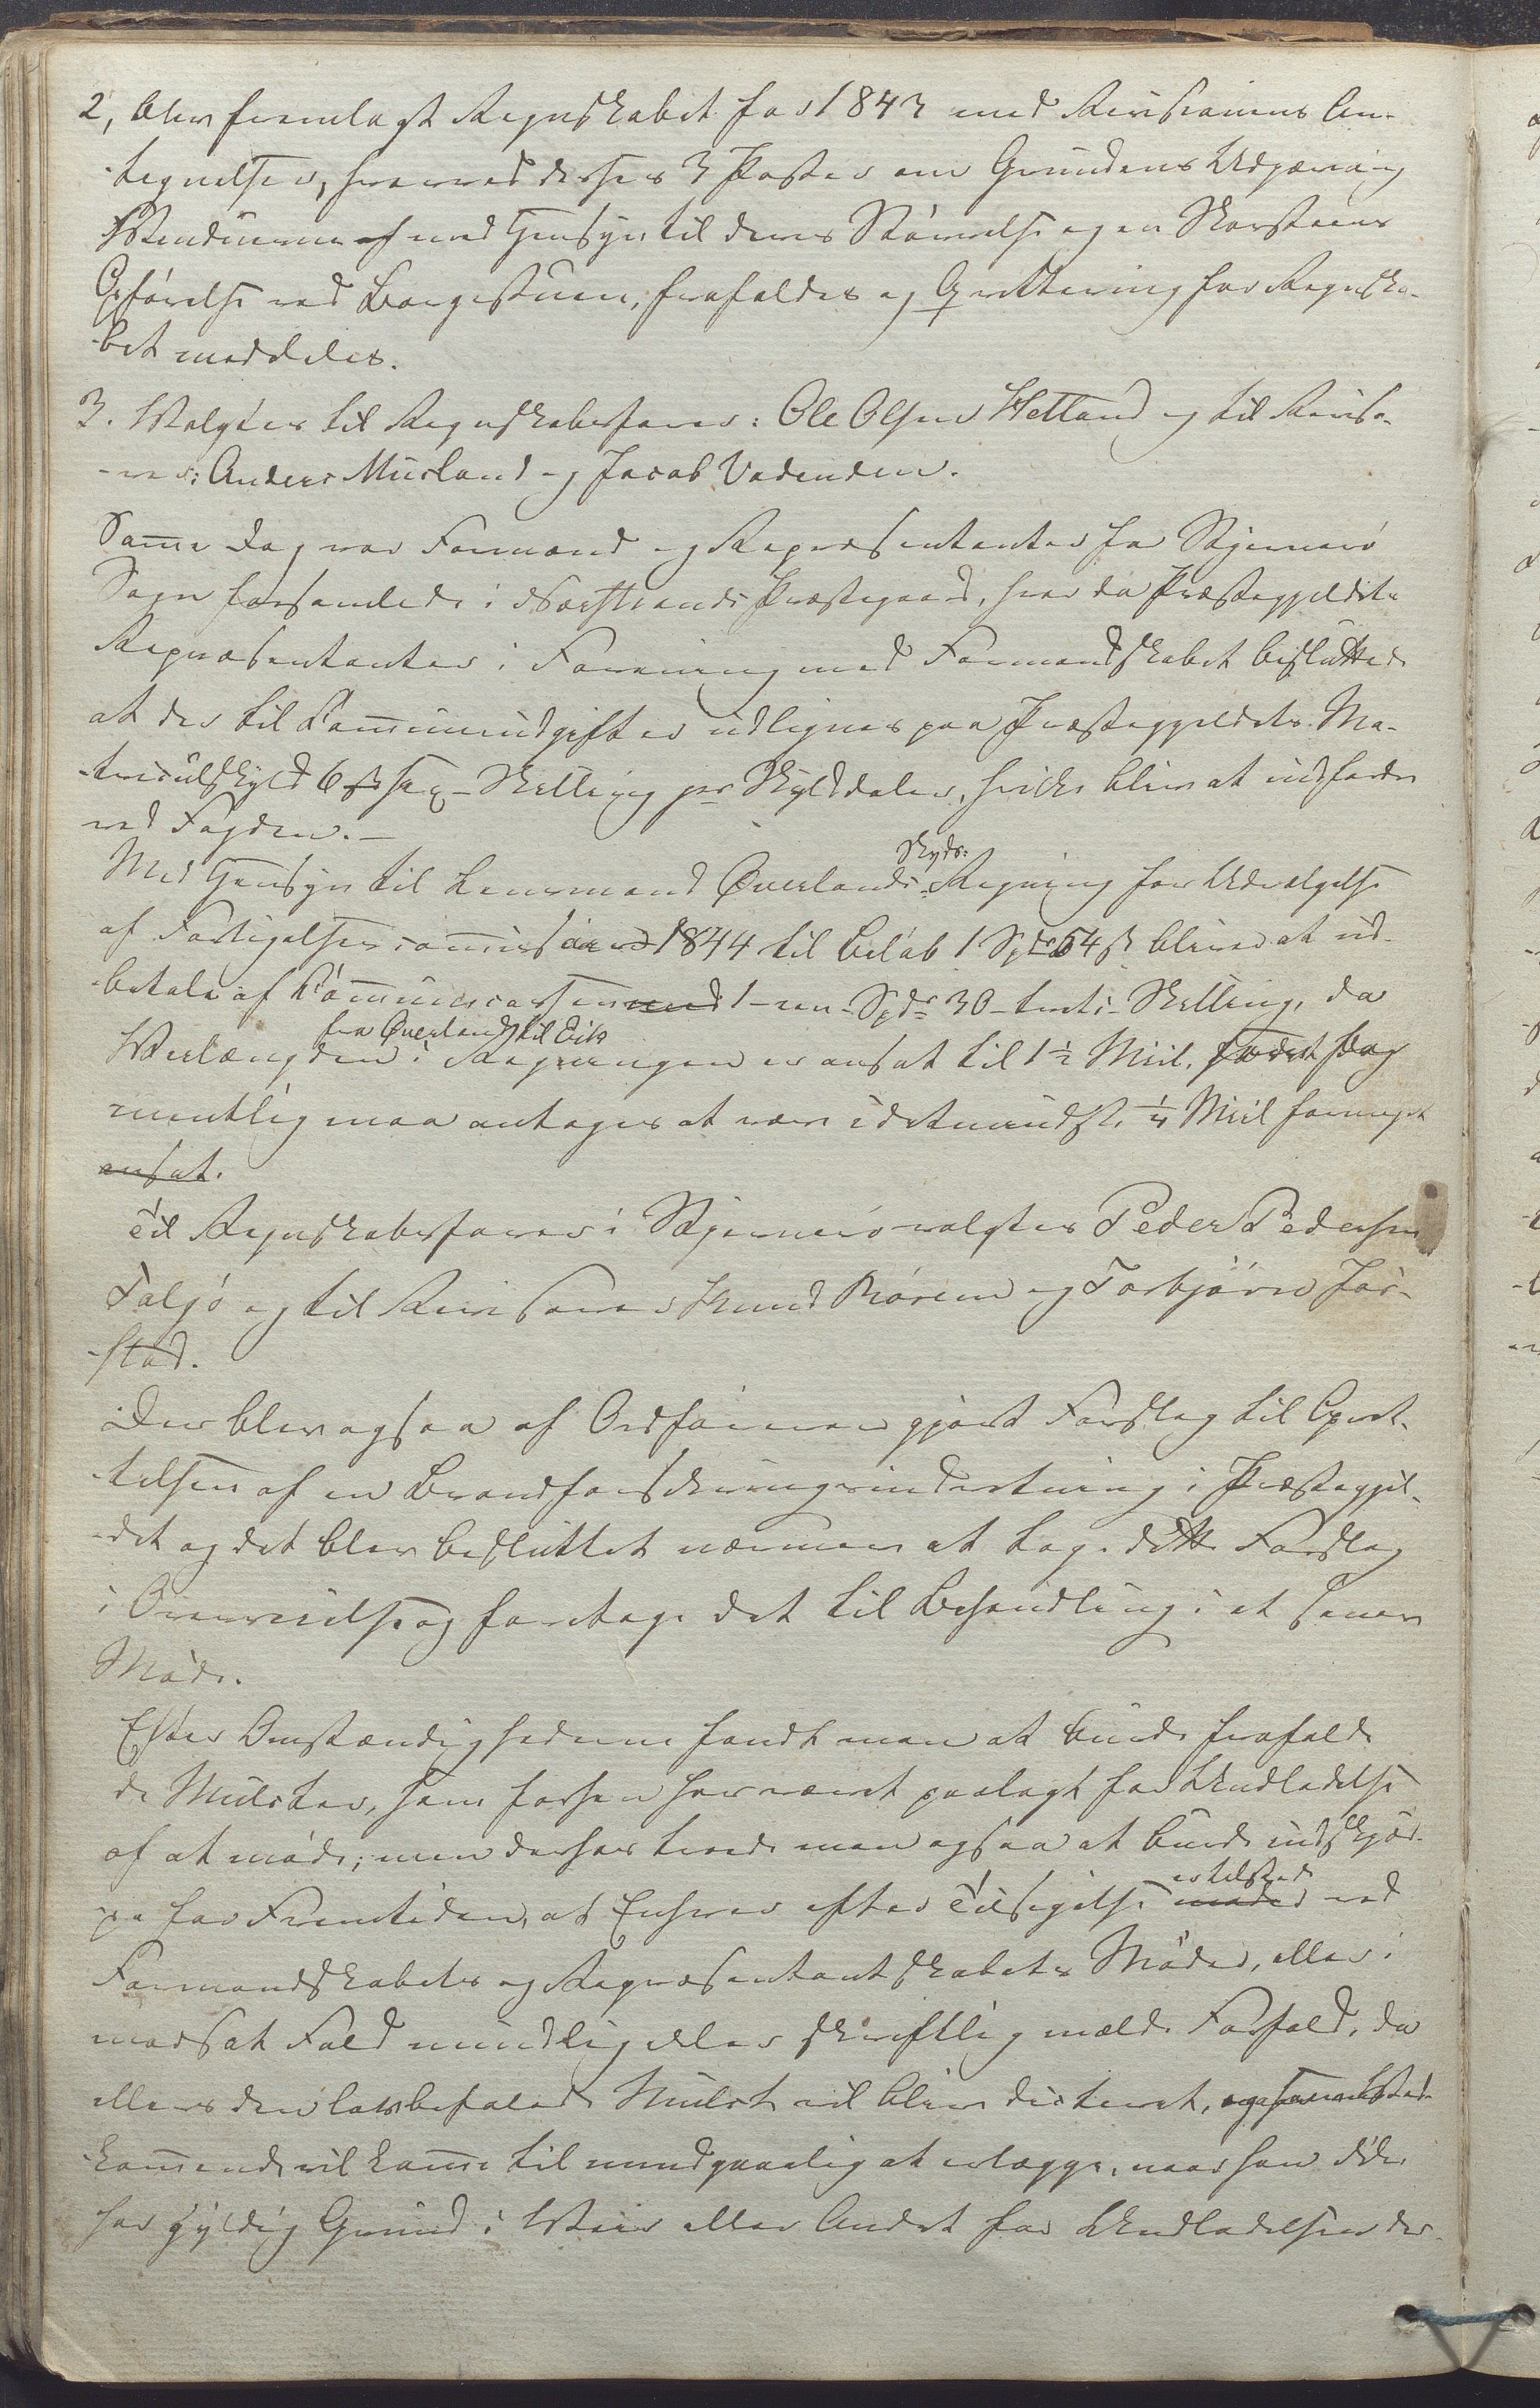 2, blev fremlagt Regnskabet for 1843 med Revisionens An-
-tegnelser, hvorved disses 3 Poster om Grundens Udgravning
Vinduerne af med Hensyn til deres Størrelse og en Skorsteens
Opførelse ved Borgestuen, frafaldes og Qvittering for Regnska-
-bet meddeles.
3. Valgtes til Regnskabsfører: Ole Olsen Hetland og til Reviso-
-rer: Anders Musland og Jacob Vadenden.
Samme Dag var Formænd og Repræsentanter for Stjernerø
Sogn forsamlede i Nærstrands Præstegaard, hvor da Præstegjeldets
Repræsentanter i Forening med Formandskabet besluttede
at der til Communeudgifter udlignes paa Præstegjeldets Ma-
-triculskyld 6 ß sex Skilling pr Skylddaler, hvilke blive at indfordre
ved Fogden.-
Med Hensyn til Lensmand Øverlands Skyds: Regning for Udvælgelse
af Forligelsescommissairer 1844 til Beløb 1 Spdr 54 ß bliver at ud-
-betale af Communecassen med 1-een-Spdr 30-treti-Skilling, da
fra Øverland til Vik
Veilængden i Regningen er ansat til 1½ Miil, hvilket dog
rimeligviis maa antages at være idetmindste ¼ Miil formeget
ansat.
Til Regnskabsfører i Stjernerø valgtes Peder Pedersen
Taljø og til Revisorer Knud Rørem og Torbjørn Jør-
-stad.
Der blev ogsaa af Ordføreren gjort Forslag til Opret-
-telsen af en Brandforsikringsindretning i Præstegjel-
-det og det blev besluttet nærmere at tage dette Forslag
i Overveielse og foretage det til Behandling i et senere
Møde.
Efter Omstændighederne fandt man at burde frafalde
de Mulcter, som forhen har været paalagt for Undladelse
af at møde; men derhos troede man ogsaa at burde indskjær-
pe for Fremtiden, at Enhver efter Tilsigelse møder er tilstede ved
Formandskabets og Repræsentantskabets Møder, eller i
modsat Fald mundtlig eller skriftlig melde Forfald, da
ellers den lovbefalede Mulct vil blive dicteret, som Vedk
-kommende vil komme til uundgaaelig at erlægge, naar han ikke
har gyldig Grund i Veir eller Andet for Undladelsen der-